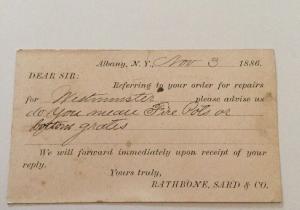 Albany, N.Y., Nov 3 1886.
DEAR SIR:
Referring to your order for repairs
for Westminster please advise us
do you mean Fire Pots or
bottom grates
We will forward immediately upon receipt of your
reply.
Yours truly,
RATHBONE, SARD & CO.